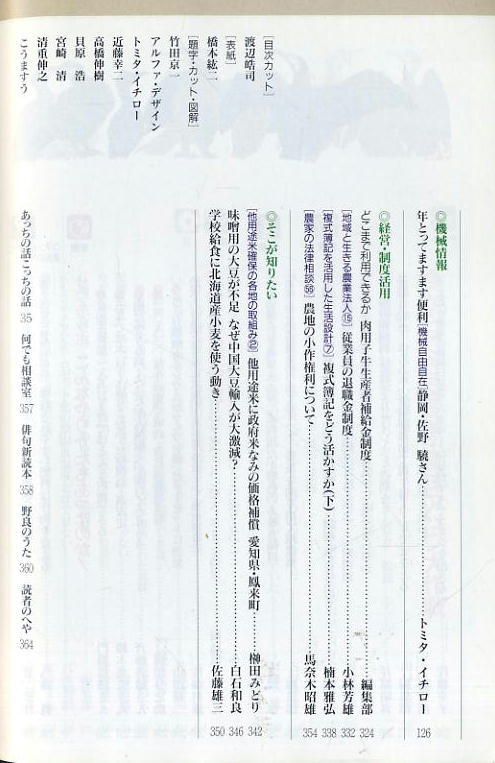 ◎機械情報
年とってますます便利[機械自由自在]静岡・佐野 驍さん……トミタ・イチロー 126
◎経営・制度活用
どこまで利用できるか 肉用子牛生産者補給金制度……編集部 324
[地域と生きる農業法人⑮]従業員の退職金制度……小林芳雄 332
[複式簿記を活用した生活設計⑦]複式簿記をどう活かすか(下)……楠本雅弘 338
[農家の法律相談56]農地の小作権利について……馬奈木昭雄 354
◎そこが知りたい
[他用途米確保の各地の取組み②]他用途米に政府米なみの価格補償 愛知県・鳳来町……榊田みどり 342
味噌用の大豆が不足 なぜ中国大豆輸入が大激減?……白石和良 346
学校給食に北海道産小麦を使う動き……佐藤雄三 350
[目次カット]
渡辺皓司
[表紙]
橋本紘二
[題字・カット・図解]
竹田京一
アルファ・デザイン
トミタ・イチロー
近藤幸二
高橋伸樹
貝原 浩
宮崎 清
清重伸之
こうますう
あっちの話・こっちの話 35 何でも相談室 357 俳句新読本 358 野良のうた 360 読者のへや 364